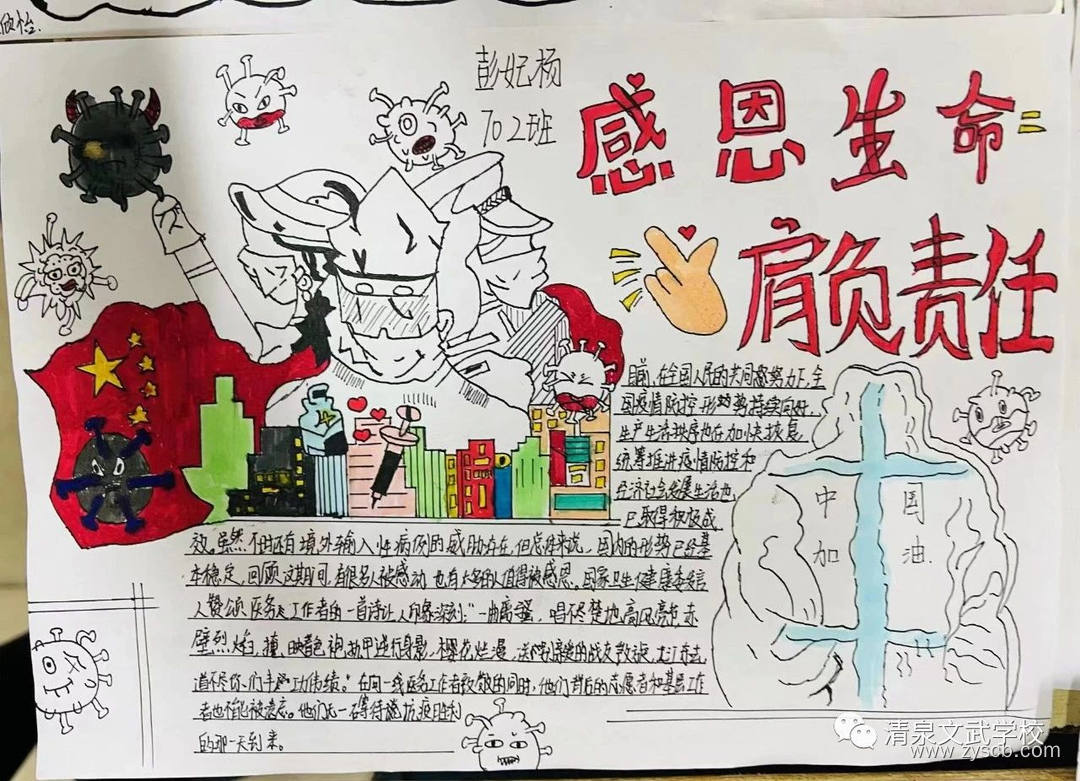 欣怡.
彭妃杨
702班
感恩生命
肩负责任
目前,在全国人民的共同努力下,全
国疫情防控形势持续向好,
生产生活秩序也在加快恢复,
统筹推进疫情防控和
经济社会发展生活也
已取得积极成
效。虽然不时还有境外输入性病例的威胁存在,但总体来说,国内的形势已经基
本稳定,回顾这期间,有很多人被感动,也有太多的人值得被感恩。国家卫生健康委
人赞颂医务工作者的一首诗让人印象深刻:“一曲离骚,唱不尽楚地高风亮节,赤
壁烈焰,
身影,樱花烂漫,
的战友敬,大江东去,
道不尽你们丰功伟绩。”在向一线医务工作者致敬的同时,他们背后的志愿者和基层工作
者也不能被遗忘。他们也一样等待着抗疫胜利
的那一天到来。
中国
加油
清泉文武学校
www.zyscb.com